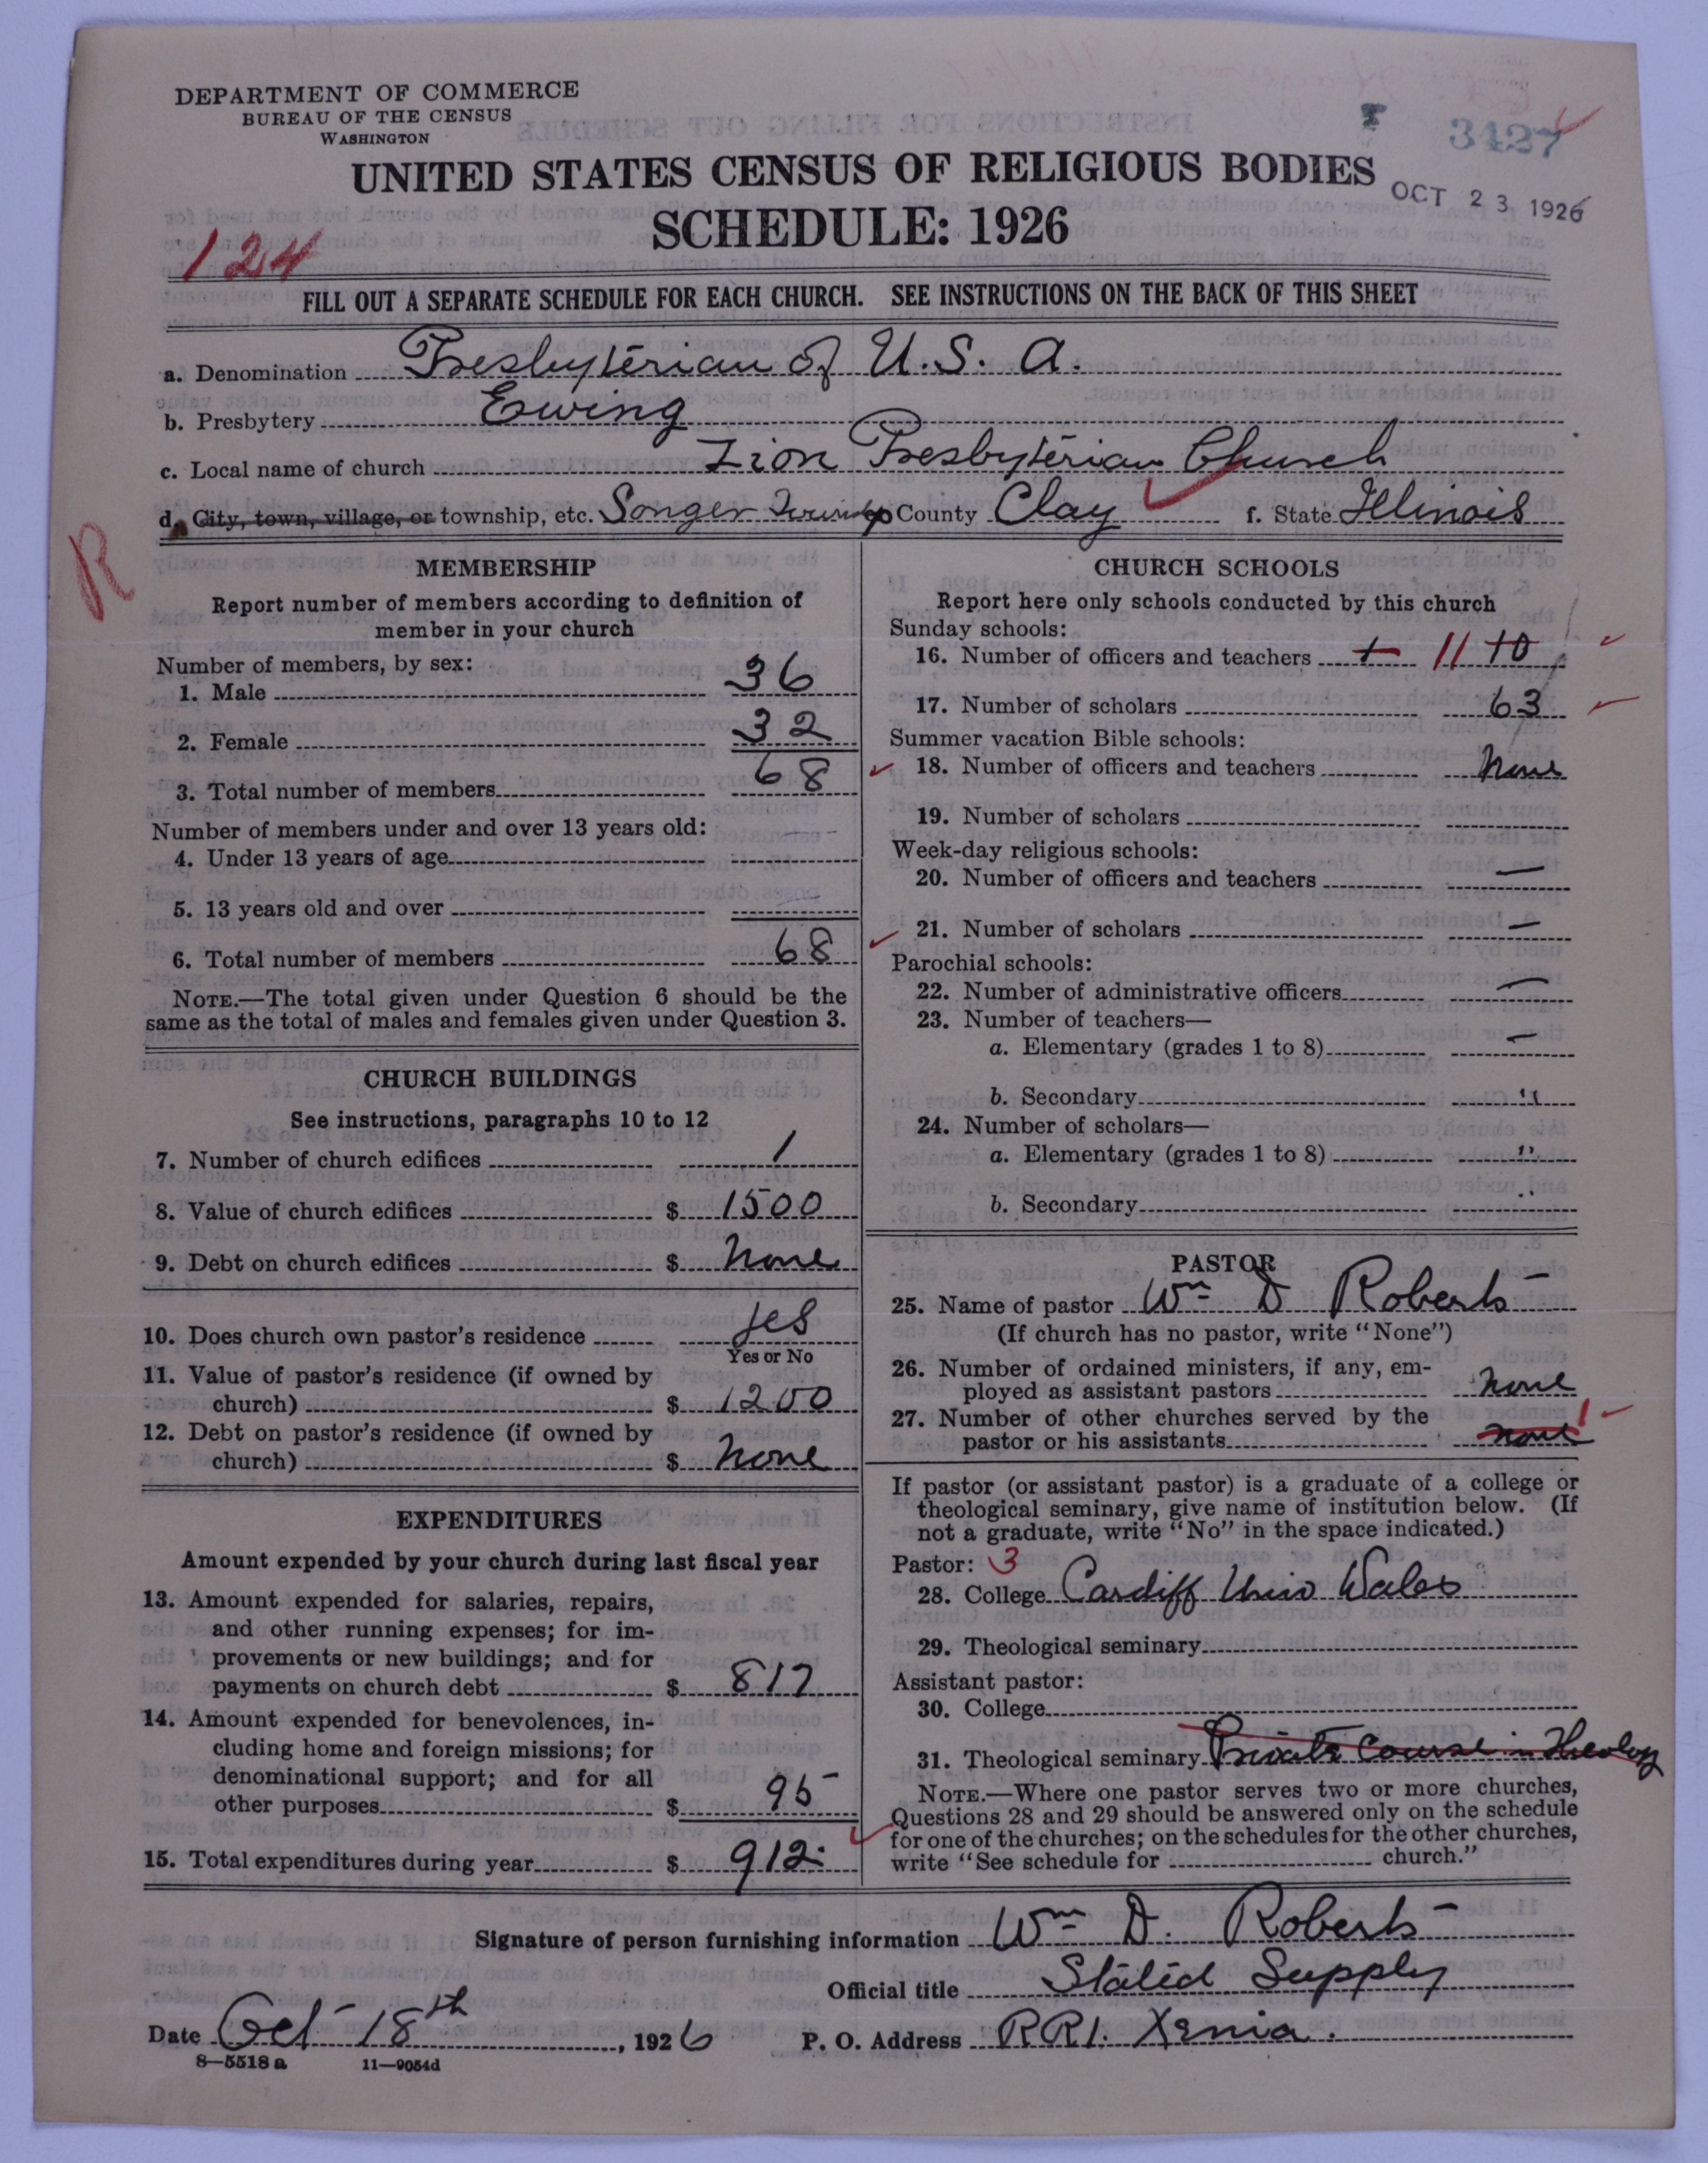 DEPARTMENT OF COMMERCE
BUREAU OF THE CENSUS
WASHINGTON
3427
UNITED STATES CENSUS OF RELIGIOUS BODIES
OCT 23 1926
SCHEDULE: 1926
124
FILL OUT A SEPARATE SCHEDULE FOR EACH CHURCH. SEE INSTRUCTIONS ON THE BACK OF THIS SHEET
a. Denomination Presbyterian of U.S. A.
b. Presbytery Ewing
c. Local name of church Zion Presbyterian Church
d. City, town, village, or township, etc. Songer Township County Clay f. State Illinois
R
MEMBERSHIP
Report number of members according to definition of
member in your church
Number of members, by sex:
1. Male 36
2. Female 32
3. Total number of members 68
Number of members under and over 13 years old:
4. Under 13 years of age
5. 13 years old and over
6. Total number of members 68
NOTE.—The total given under Question 6 should be the
same as the total of males and females given under Question 3.
CHURCH BUILDINGS
See instructions, paragraphs 10 to 12
7. Number of church edifices 1
8. Value of church edifices $ 1500
9. Debt on church edifices $ None
10. Does church own pastor's residence yes
Yes or No
11. Value of pastor's residence (if owned by
church) $ 1200
12. Debt on pastor's residence (if owned by
church) $ None
EXPENDITURES
Amount expended by your church during last fiscal year
13. Amount expended for salaries, repairs,
and other running expenses; for im-
provements or new buildings; and for
payments on church debt $ 817
14. Amount expended for benevolences, in-
cluding home and foreign missions; for
denominational support; and for all
other purposes $ 95
15. Total expenditures during year $ 912
CHURCH SCHOOLS
Report here only schools conducted by this church
Sunday schools:
16. Number of officers and teachers 1 11 10
17. Number of scholars 63
Summer vacation Bible schools:
18. Number of officers and teachers None
19. Number of scholars
Week-day religious schools:
20. Number of officers and teachers —
21. Number of scholars —
Parochial schools:
22. Number of administrative officers —
23. Number of teachers—
a. Elementary (grades 1 to 8) —
b. Secondary "
24. Number of scholars—
a. Elementary (grades 1 to 8) "
b. Secondary "
PASTOR
25. Name of pastor Wm D Roberts
(If church has no pastor, write "None")
26. Number of ordained ministers, if any, em-
ployed as assistant pastors none
27. Number of other churches served by the 1
pastor or his assistants none
If pastor (or assistant pastor) is a graduate of a college or
theological seminary, give name of institution below. (If
not a graduate, write "No" in the space indicated.)
Pastor: 3
28. College Cardiff Univ Wales
29. Theological seminary
Assistant pastor:
30. College
31. Theological seminary Private Course in Theology
NOTE.—Where one pastor serves two or more churches,
Questions 28 and 29 should be answered only on the schedule
for one of the churches; on the schedules for the other churches,
write "See schedule for church."
Signature of person furnishing information Wm D. Roberts
Official title Stated Supply
Date Oct 18th, 1926 P. O. Address RR1. Xenia.
8—5518a 11—9054d